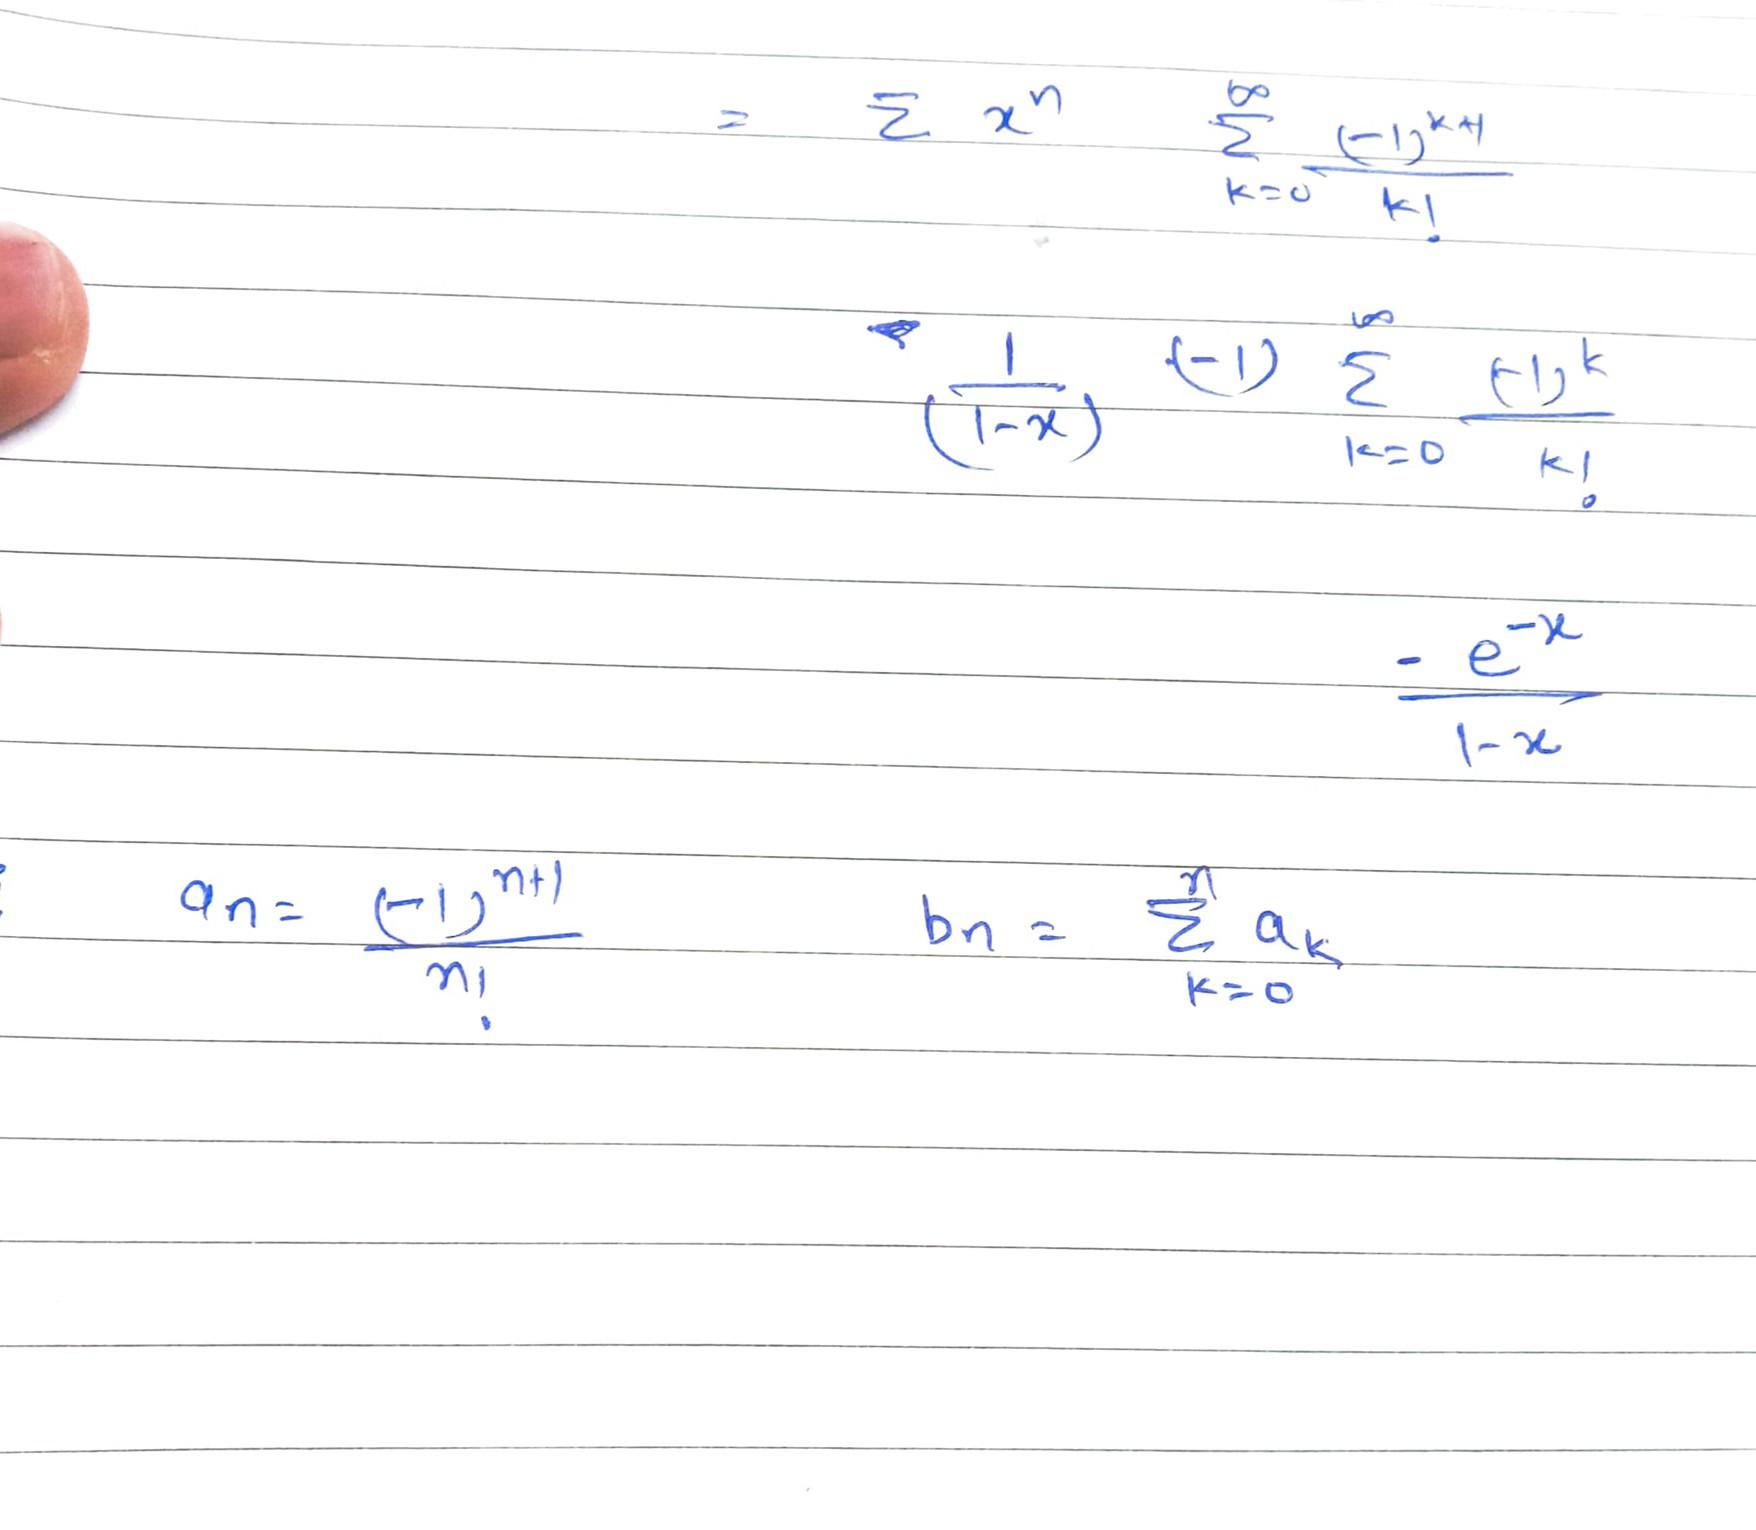 = Σ xⁿ ∞ Σ k=0 (-1)^{k+1} / k!
(1 / 1-x) (-1) ∞ Σ k=0 (-1)^k / k!
- e^{-x} / 1-x
aₙ = (-1)^{n+1} / n! bₙ = n Σ k=0 aₖ